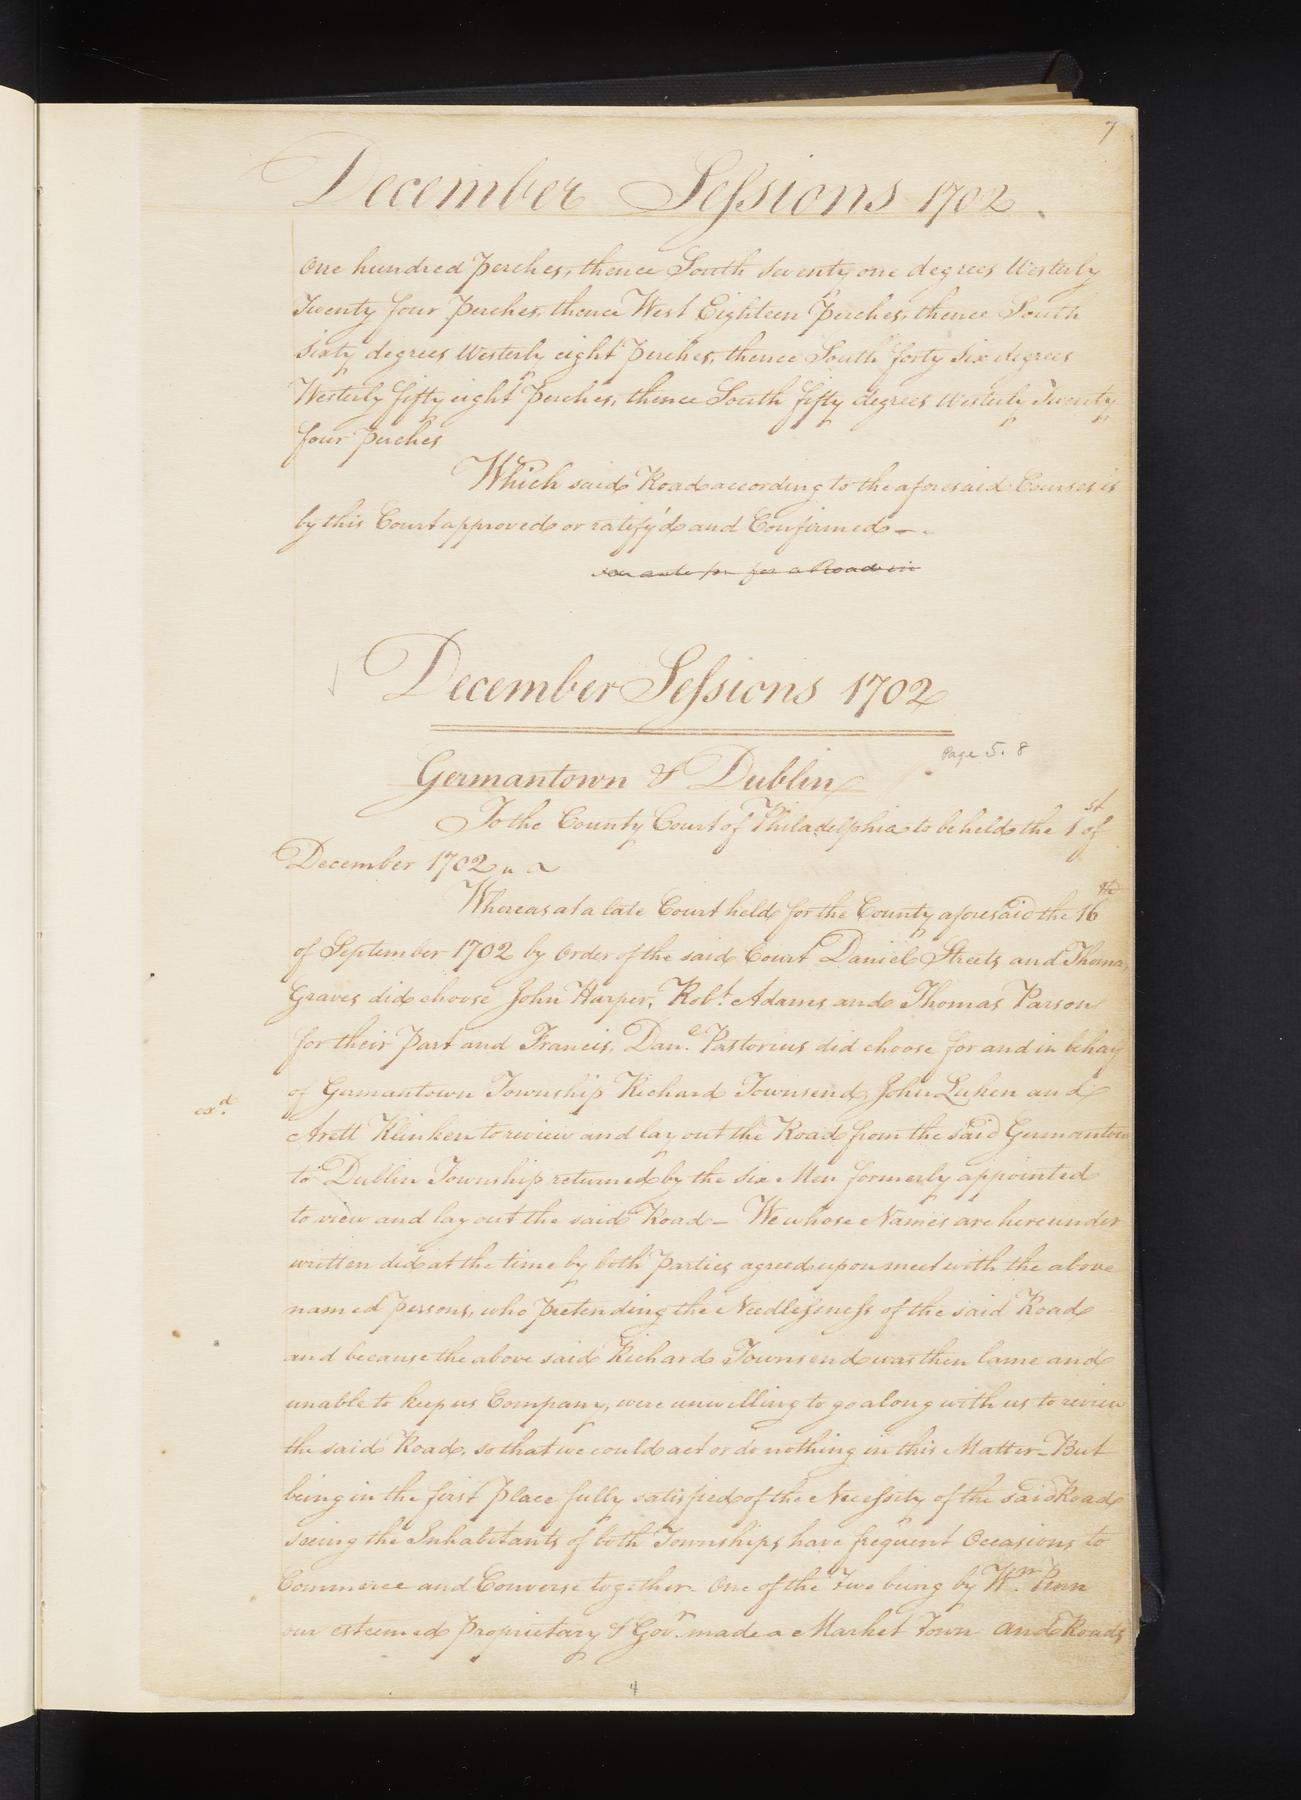 7
December Sessions 1702.
One hundred Perches, thence South Seventy one degrees Westerly
Twenty four Perches, thence West Eighteen Perches, thence South
Sixty degrees Westerly eight Perches, thence South forty Six degrees
Westerly fifty eight Perches, thence South fifty degrees Westerly Twenty
four Perches
Which said Road according to the aforesaid Courses is
by this Court approved or ratify'd and Confirmed —.
for a Road in
December Sessions 1702
Page 5. 8
Germantown & Dublin
To the County Court of Philadelphia to be held the 1st of
December 1702
Whereas at a late Court held for the County aforesaid the 16th
of September 1702 by Order of the said Court Daniel Streets and Thomas
Graves did choose John Harper, Robt. Adams and Thomas Parson
for their Part and Francis Danl. Pastorius did choose for and in behalf
of Germantown Township Richard Townsend, John Luken and
exd.
Arett Klinken to review and lay out the Road from the said Germantown
to Dublin Township returned by the six Men formerly appointed
to view and lay out the said Road — We whose Names are hereunder
written did at the time by both Parties agreed upon meet with the above
named Persons, who Pretending the Needlessness of the said Road
and because the above said Richard Townsend was then lame and
unable to keep us Company, were unwilling to go along with us to review
the said Road, so that we could act or do nothing in this Matter — But
being in the first Place fully satisfied of the Necessity of the said Road
seeing the Inhabitants of both Townships have frequent Occasions to
Commerce and Converse together. One of the Two being by Wm. Penn
our esteemed Proprietary & Govr. made a Market Town and Roads
4